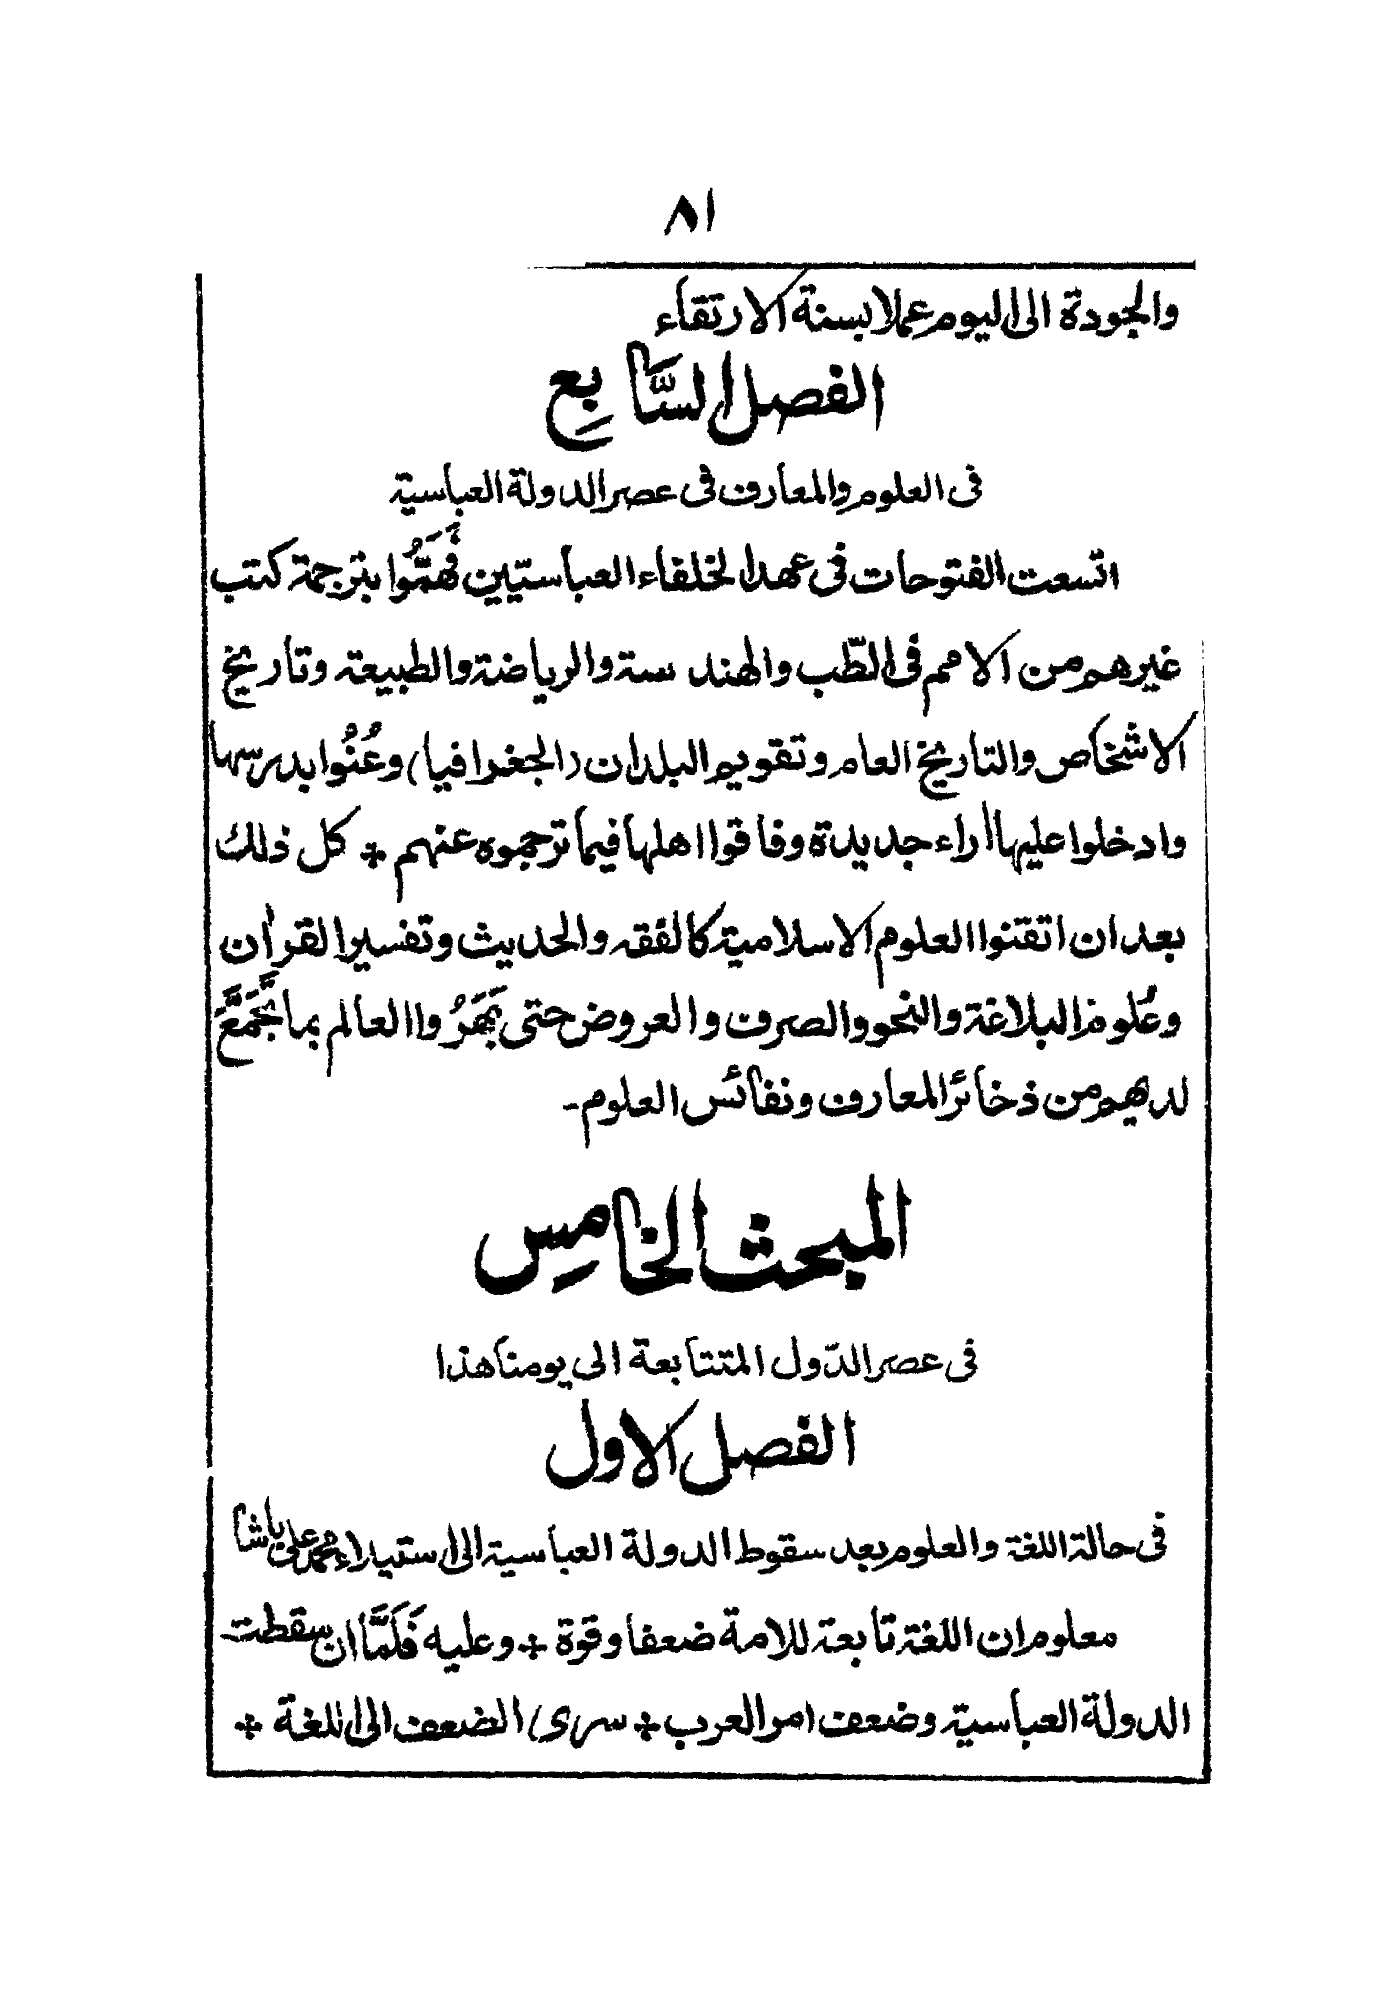 ٨١
والجودة الى اليوم عملا بسنة الارتقاء
الفصل السَّابِع
فى العلوم والمعارف فى عصر الدولة العباسية
اتسعت الفتوحات فى عهد الخلفاء العباسيّين فَهَمُّوا بترجمة كتب
غيرهم من الامم فى الطّب والهندسة والرياضة والطبيعة وتاريخ
الاشخاص والتاريخ العام وتقويم البلدان (الجغرافيا) وعُنُوا بدرسها
وادخلوا عليها اراء جديدة وفاقوا اهلها فيما ترجموه عنهم ÷ كل ذلك
بعد ان اتقنوا العلوم الاسلامية كالفقه والحديث وتفسير القران
وعُلوم البلاغة والنحو والصرف والعروض حتى بَهَرُوا العالم بما تَجَمَّعَ
لديهم من ذخائر المعارف ونفائس العلوم-
المبحث الخامِس
فى عصر الدّول المتتابعة الى يومنا هذا
الفصل الاول
فى حالة اللغة والعلوم بعد سقوط الدولة العباسية الى استيلاء محمد على باشا
معلوم ان اللغة تابعة للامة ضعفا وقوة ÷ وعليه فَلَمَّا ان سقطت
الدولة العباسية وضعف امر العرب ÷ سرى الضعف الى اللغة ÷